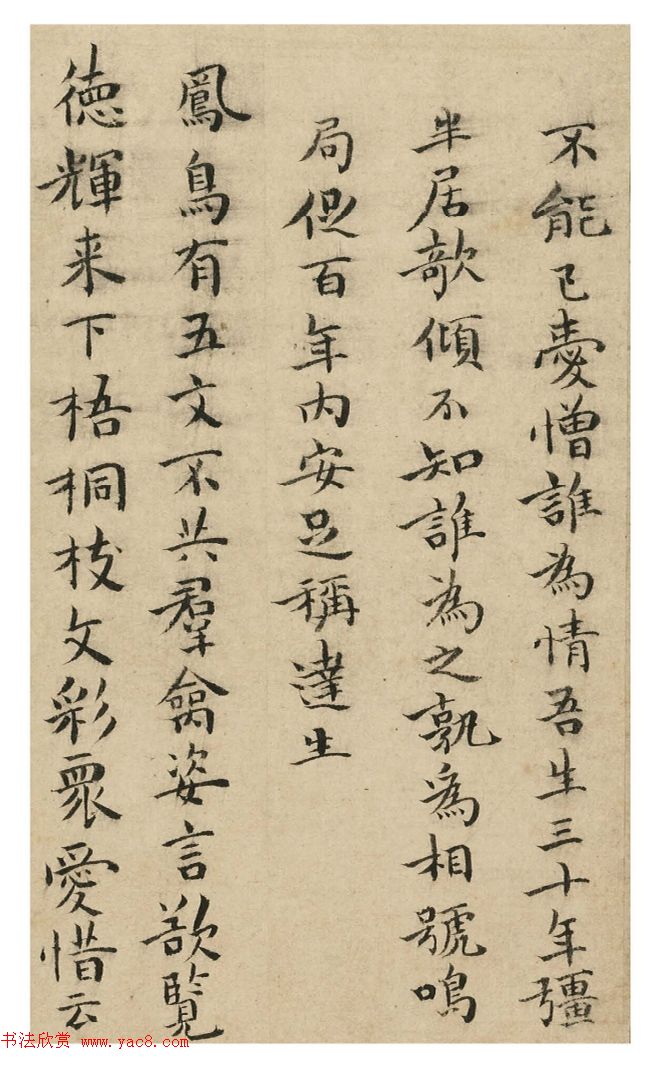 不能已憂憎誰為情吾生三十年彊
半居欹傾不知誰為之孰為相號鳴
局促百年内安足稱達生
鳳鳥有五文不共羣禽姿言欲覧
徳輝来下梧桐枝文彩眾愛惜云
书法欣赏 www.yac8.com